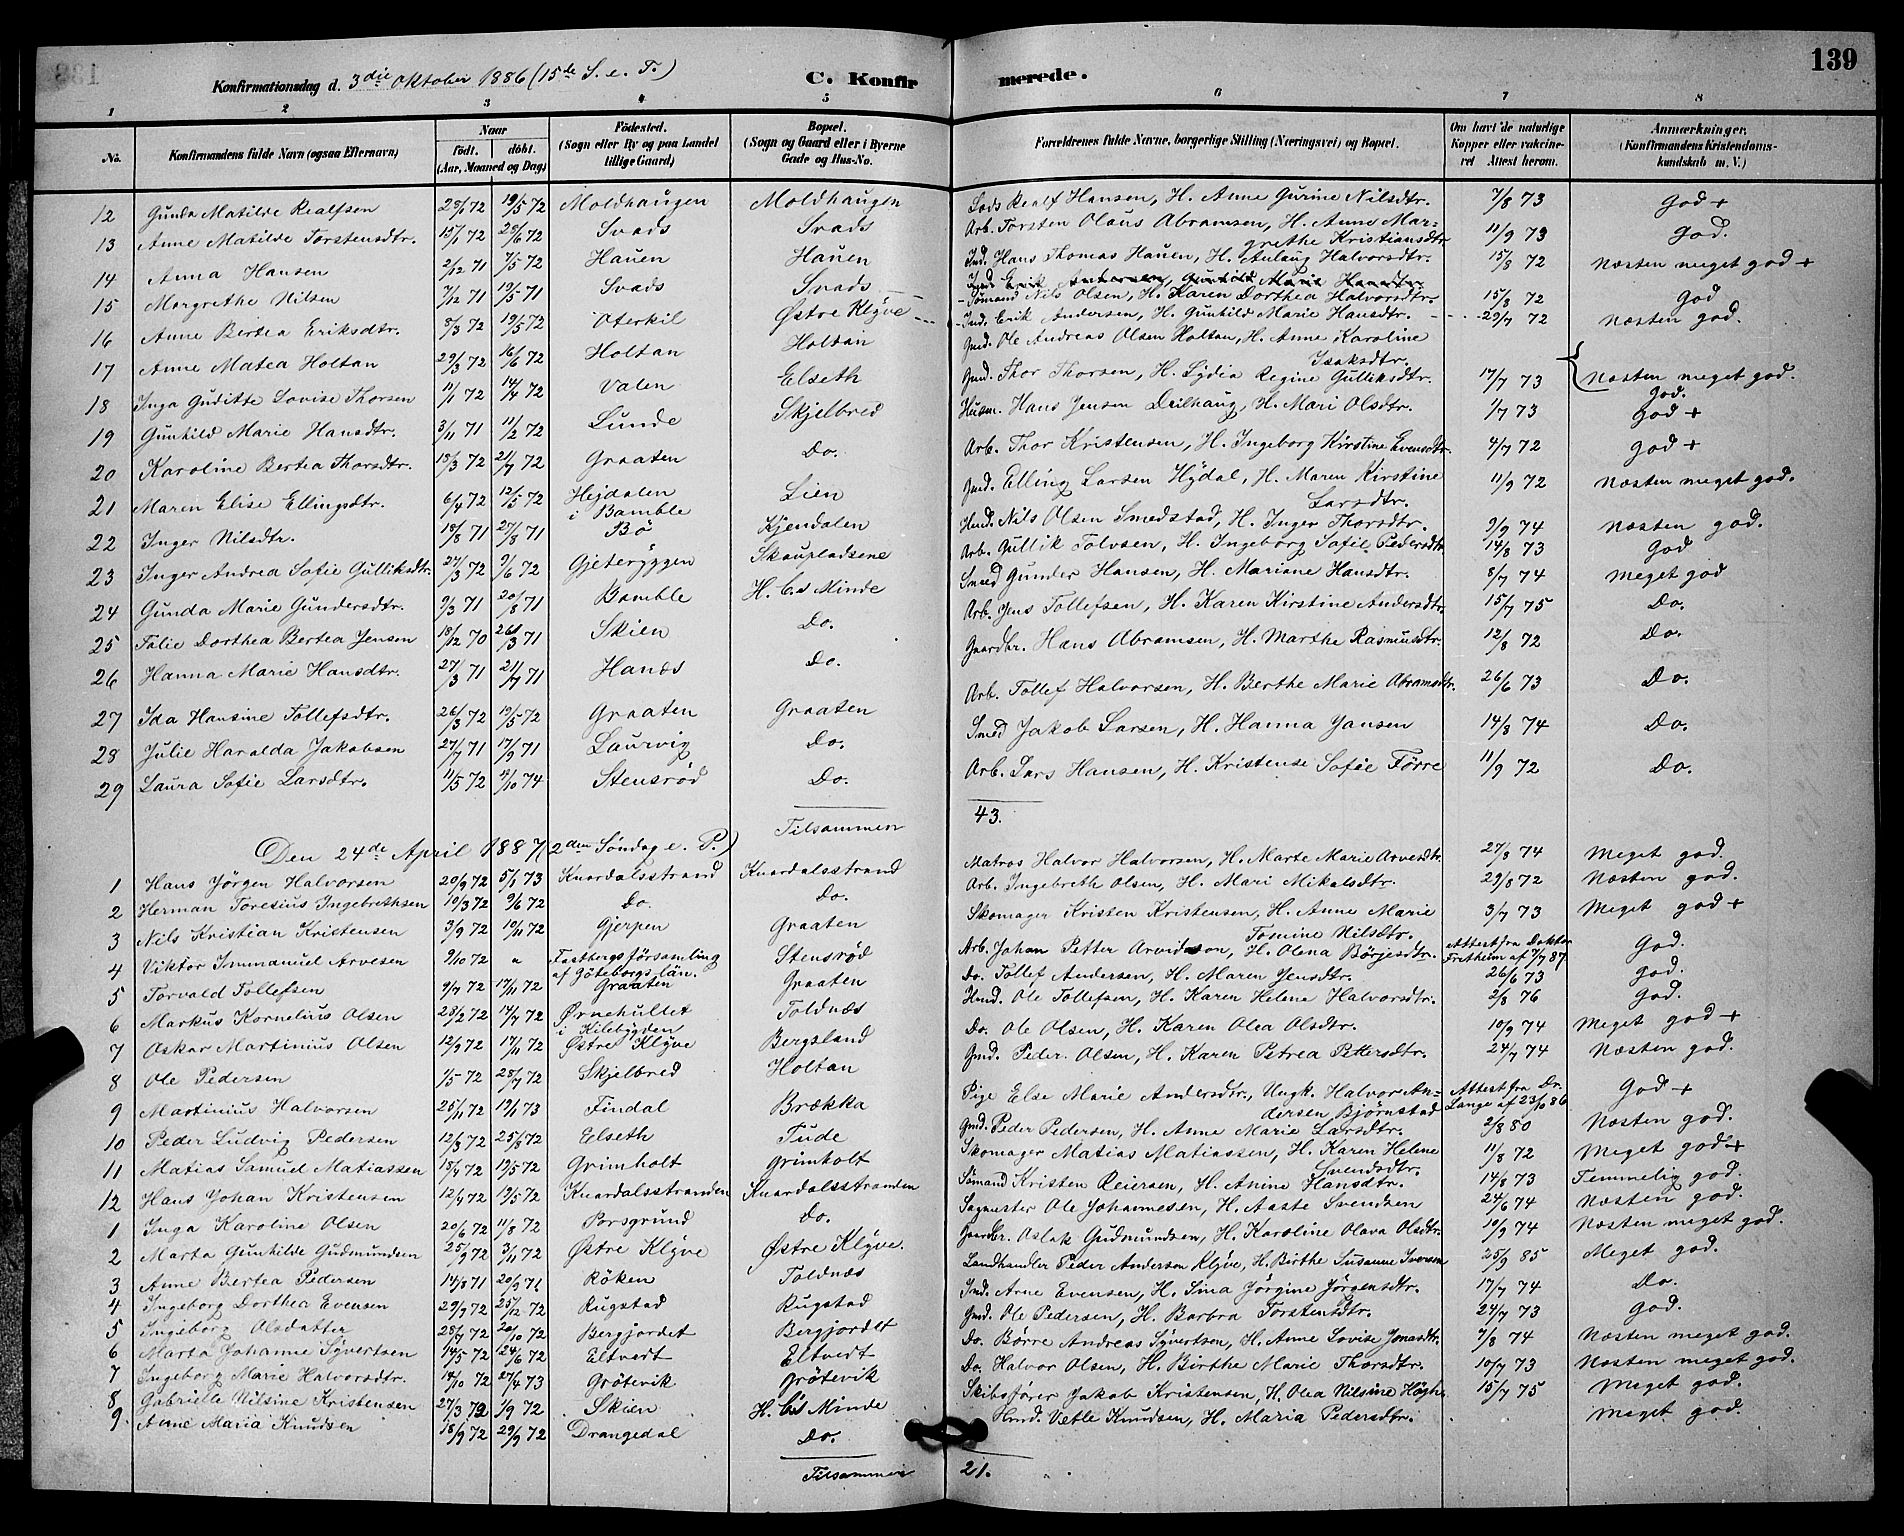 139
Konfirmationsdag d. 3die Oktober 1886 (15de S. e. T.) C. Konfirmerede.
1 2 3 4 5 6 7 8
No. Konfirmandens fulde Navn (ogsaa Efternavn) Naar født. døbt. (Aar, Maaned og Dag) Födested. (Sogn eller By og paa Landet tillige Gaard) Bopæl. (Sogn og Gaard eller i Byerne Gade og Hus-No. Forældrenes fulde Navne, borgerlige Stilling (Næringsvei) og Bopæl. Om havt de naturlige Kopper eller vakcineret Attest herom. Anmærkninger. (Konfirmandens Kristendomskundskab m. V.)
12 Gunda Matilde Realfsen 28/6 72 19/5 72 Moldhaugen Moldhaugen Lods Realf Hansen, H. Anne Gurine Nilsdtr. 7/8 73 God +
13 Anne Matilde Torstensdtr. 15/1 72 28/6 72 Svads Svads Arb. Torsten Olaus Abramsen, H. Anne Margrethe Kristiansdtr 11/9 73 God.
14 Anna Hansen 2/12 71 7/5 72 Hauen Hauen Ind. Hans Thomas Hauen, H. Anlaug Halvorsdtr. 15/8 72 Næsten meget god +
Ind. Erik Andersen, Gunhild Marie Hansdtr.
15 Margrethe Nilsen 7/12 71 19/5 71 Svads Svads Sømand Nils Olsen, H. Karen Dorthea Halvorsdtr. 15/8 72 God
16 Anne Bertea Eriksdtr. 8/3 72 19/5 72 Oterkil Østre Klyve Ind. Erik Andersen, H. Gunhild Marie Hansdtr. 29/7 72 Næsten god.
17 Anne Matea Holtan 29/3 72 16/6 72 Holtan Holtan Gmd. Ole Andreas Olsen Holtan, H. Anne Karoline Isaksdtr.
18 Inga Guditte Lovise Thorsen 11/1 72 14/4 72 Valen Elseth Gmd. Thor Thorsen, H. Lydia Regine Gulliksdtr. 17/7 73 Næsten meget god. God.
19 Gunhild Marie Hansdtr. 3/11 71 11/2 72 Lunde Skjelbred Husm. Hans Jensen Deilhaug, H. Mari Olsdtr. 1/7 73 God +
20 Karoline Bertea Thorsdtr. 18/3 72 21/7 72 Graaten Do. Arb. Thor Kristensen, H. Ingeborg Kirstine Evensdtr. 4/7 72 God +
21 Maren Elise Ellingsdtr. 6/4 72 12/5 72 Hejdalen i Bamble Lien Gmd. Elling Larsen Hydal, H. Maren Kirstine Larsdtr. 11/9 72 Næsten meget god.
22 Inger Nilsdtr. 18/8 71 27/8 71 Bø Kjendalen Hmd. Nils Olsen Smedstad, H. Inger Thorsdtr. 9/9 74 Næsten god.
23 Inger Andrea Sofie Gulliksdtr. 24/3 72 9/6 72 Gjeteryggen Skaupladsene Arb. Gullik Tolvsen, H. Ingeborg Sofie Pedersdtr 14/8 73 God
24 Gunda Marie Gundersdtr. 9/3 71 20/8 71 Bamble H. C.s Minde Smed Gunder Hansen, H. Mariane Hansdtr. 8/7 74 Meget god
25 Tålie Dorthea Bertea Jensen 18/12 70 26/3 71 Skien Do. Arb. Jens Tollefsen, H. Karen Kirstine Andersdtr 15/7 75 Do.
26 Hanna Marie Hansdtr. 27/3 71 21/7 71 Hanæs Do. Gaardbr. Hans Abramsen, H. Marthe Rasmusdtr. 12/8 72 Do.
27 Ida Hansine Tollefsdtr. 26/3 72 19/5 72 Graaten Graaten Arb. Tollef Halvorsen, H. Berthe Marie Abramsdtr. 26/6 73 Do.
28 Julie Haralda Jakobsen 27/7 71 17/9 71 Laurvig Do. Smed Jakob Larsen, H. Hanna Jansen 14/8 74 Do.
29 Laura Sofie Larsdtr. 11/5 72 11/10 74 Stensrød Do. Arb. Lars Hansen, H. Kristense Sofie Förre 11/9 72 Do.
Tilsammen 43.
Den 24de April 1887 (2den Søndag e. P.)
1 Hans Jörgen Halvorsen 20/9 72 5/1 73 Knardalsstrand Knardalsstrand Matros Halvor Halvorsen, H. Marte Marie Arvesdtr. 27/8 74 Meget god.
2 Herman Toresius Ingebrethsen 10/3 72 9/6 72 Do. Do. Arb. Ingebreth Olsen, H. Mari Mikalsdtr. 29/8 72 Næsten god.
3 Nils Kristian Kristensen 3/9 72 10/11 72 Gjerpen Graaten Skomager Kristen Kristensen, H. Anne Marie Tomine Nilsdtr. 3/7 73 Meget god +
4 Viktor Immanuel Arvesen 9/10 72 " Fastbergs församling af Göteborgs län. Stensrød Arb. Johan Petter Arvidsson, H. Olena Börjesdtr. Attest fra Doktor Fretheim af 7/7 87 God.
5 Torvald Tollefsen 9/7 72 17/11 72 Graaten Graaten Do. Tollef Andersen, H. Maren Jensdtr. 26/6 73 God.
6 Markus Kornelius Olsen 28/2 72 14/7 72 Ørnehullet i Kilebygden Toldnæs Hmd. Ole Tollefsen, H. Karen Helene Halvorsdtr. 2/8 76 God.
7 Oskar Martinius Olsen 12/9 72 17/11 72 Østre Klyve Bergsland Do. Ole Olsen, H. Karen Olea Olsdtr. 10/9 74 Meget god +
8 Ole Pedersen 1/5 72 28/7 72 Skjelbred Holtan Gmd. Peder Olsen, H. Karen Petrea Pettersdtr. 24/7 74 Næsten god.
9 Martinius Halvorsen 25/11 72 19/1 73 Findal Brækka Pige Else Marie Andersdtr., Ungk. Halvor Andersen Bjørnstad Attest fra Dr. Lange af 23/10 86 God +
10 Peder Ludvig Pedersen 12/3 72 25/8 72 Elseth Tude Gmd. Peder Pedersen, H. Anne Marie Larsdtr. 2/8 80 Næsten god.
11 Matias Samuel Matiassen 18/4 72 19/5 72 Grimholt Grimholt Skomager Matias Matiassen, H. Karen Helene Svendsdtr. 11/8 72 Meget god +
12 Hans Johan Kristensen 12/4 72 19/5 72 Knardalsstranden Knardalsstranden Sömand Kristen Reiersen, H. Anine Hansdtr. 14/8 73 Temmelig god.
1 Inga Karoline Olsen 20/6 72 11/8 72 Porsgrund Do. Sagmester Ole Johannesen, H. Aaste Svendsen 24/6 74 Næsten god.
2 Marta Gunhilde Gudmundsen 25/9 72 3/11 72 Østre Klyve Østre Klyve. Gaardbr. Aslak Gudmundsen, H. Karoline Olava Olsdtr. 10/9 74 Næsten meget god.
3 Anne Bertea Pedersen 14/8 71 20/9 71 Röken Toldnæs Landhandler Peder Anderson Klyve, H. Birthe Susanne Iversen 25/9 85 Meget god.
4 Ingeborg Dorthea Evensen 29/9 72 25/12 72 Rugstad Rugstad Ind. Arne Evensen, H. Ina Jörgine Jörgensdtr. 17/7 74 Do.
5 Ingeborg Olsdatter 28/7 72 20/10 72 Bergjordet Bergjordet Gmd. Ole Pedersen, H. Barbra Torstensdtr. 24/7 73 God.
6 Marta Johanne Syvertsen 14/5 72 24/6 72 Eltvedt Eltvedt Do. Börre Andreas Syvertsen, H. Anne Lovise Jonasdtr. 7/8 74 Næsten meget god.
7 Ingeborg Marie Halvorsdtr. 14/10 72 27/4 73 Grötevik Grötevik Do. Halvor Olsen, H. Birthe Marie Thorsdtr. 10/7 73 Næsten meget god.
8 Gabrielle Nilsine Kristensen 27/3 72 1/9 72 Skien H. C.s Minde Skibsförer Jakob Kristensen, H. Olea Nilsine Högh. 15/7 75 Meget god.
9. Anne Maria Knudsen 18/9 72 29/9 72 Drangedal Do. Hmd. Vetle Knudsen, H. Maria Pedersdtr. Meget god.
Tilsammen 21.